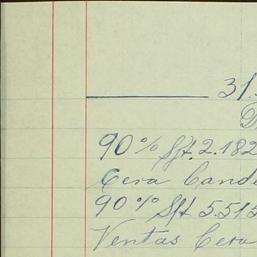 31.
90% Sft. 2.182
Cera Cande
90% Sft 5.515
Ventas Cera